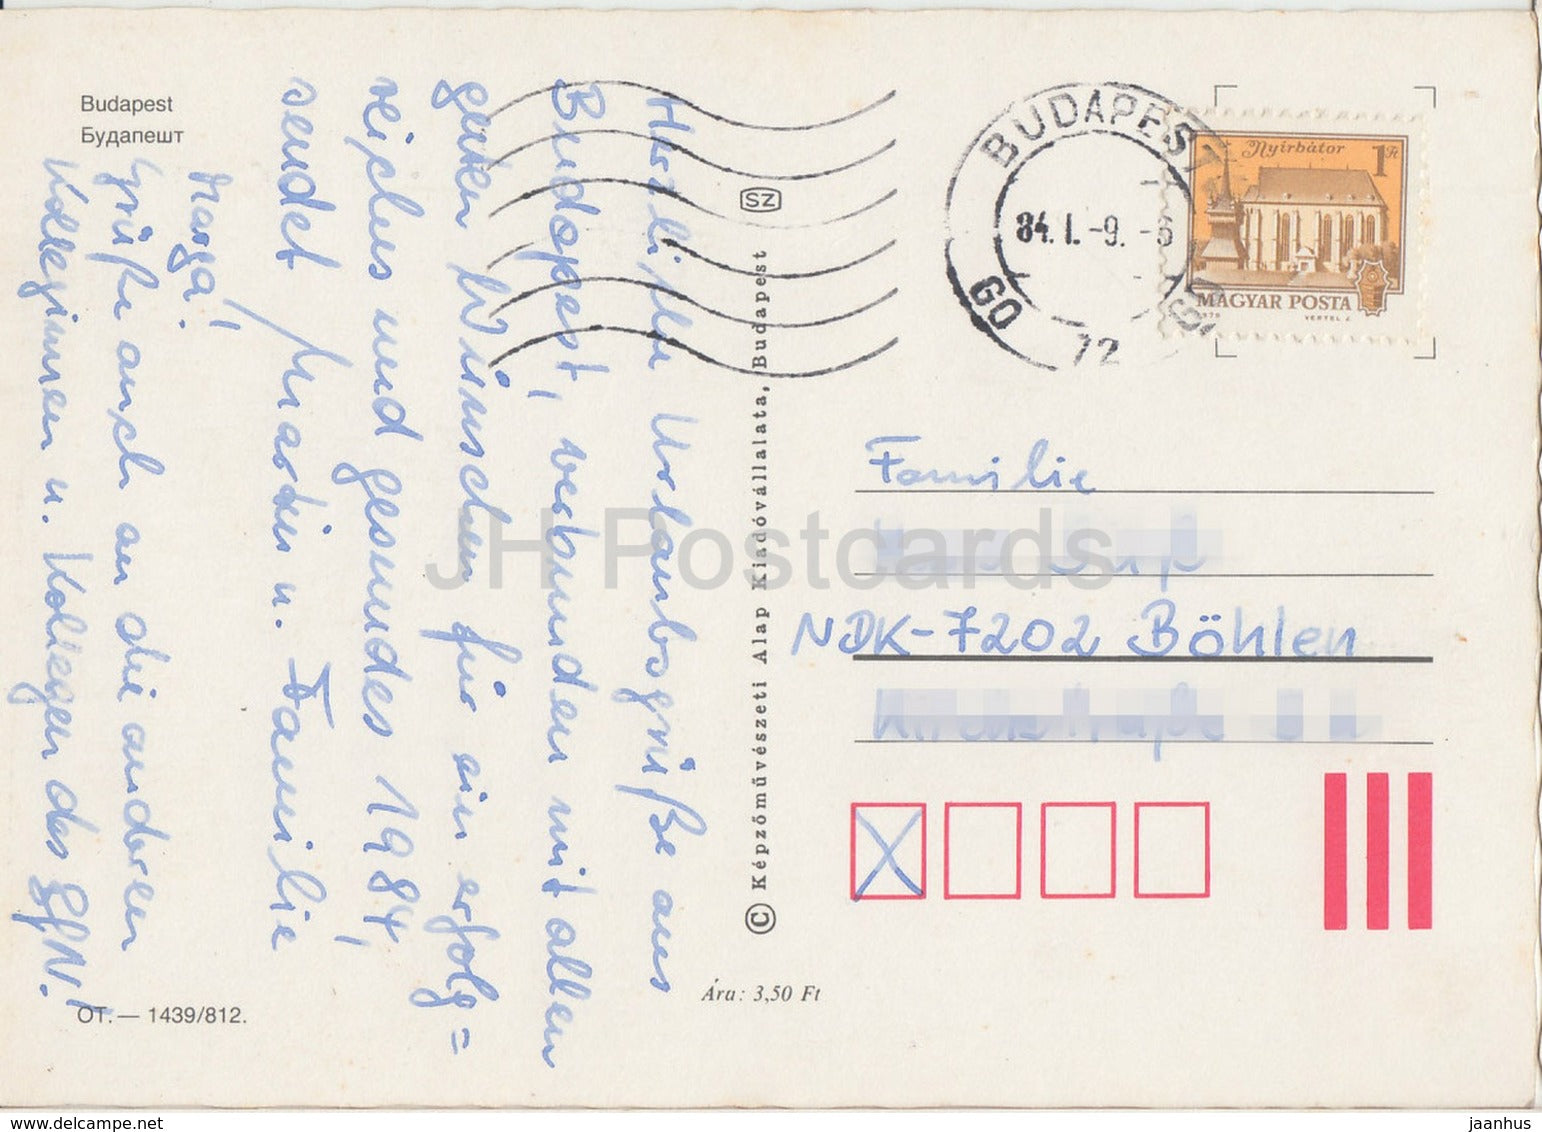 Budapest
Будапешт
Herzliche Urlaubsgrüße aus
Budapest, verbunden mit allen
guten Wünschen für ein erfolg=
reiches und gesundes 1984,
sendet Martin u. Familie
Marga,
Grüße auch an die anderen
Kolleginnen u. Kollegen des
ОТ. — 1439/812.
SZ
© Képzőművészeti Alap Kiadóvállalata, Budapest
Ára: 3,50 Ft
BUDAPEST
84. I. -9. -6
72
Nyírbátor
1 Ft
MAGYAR POSTA
1979 VERTEL J.
Familie
NDK-7202 Böhlen
JH Postcards
www.delcampe.net
jaanhus